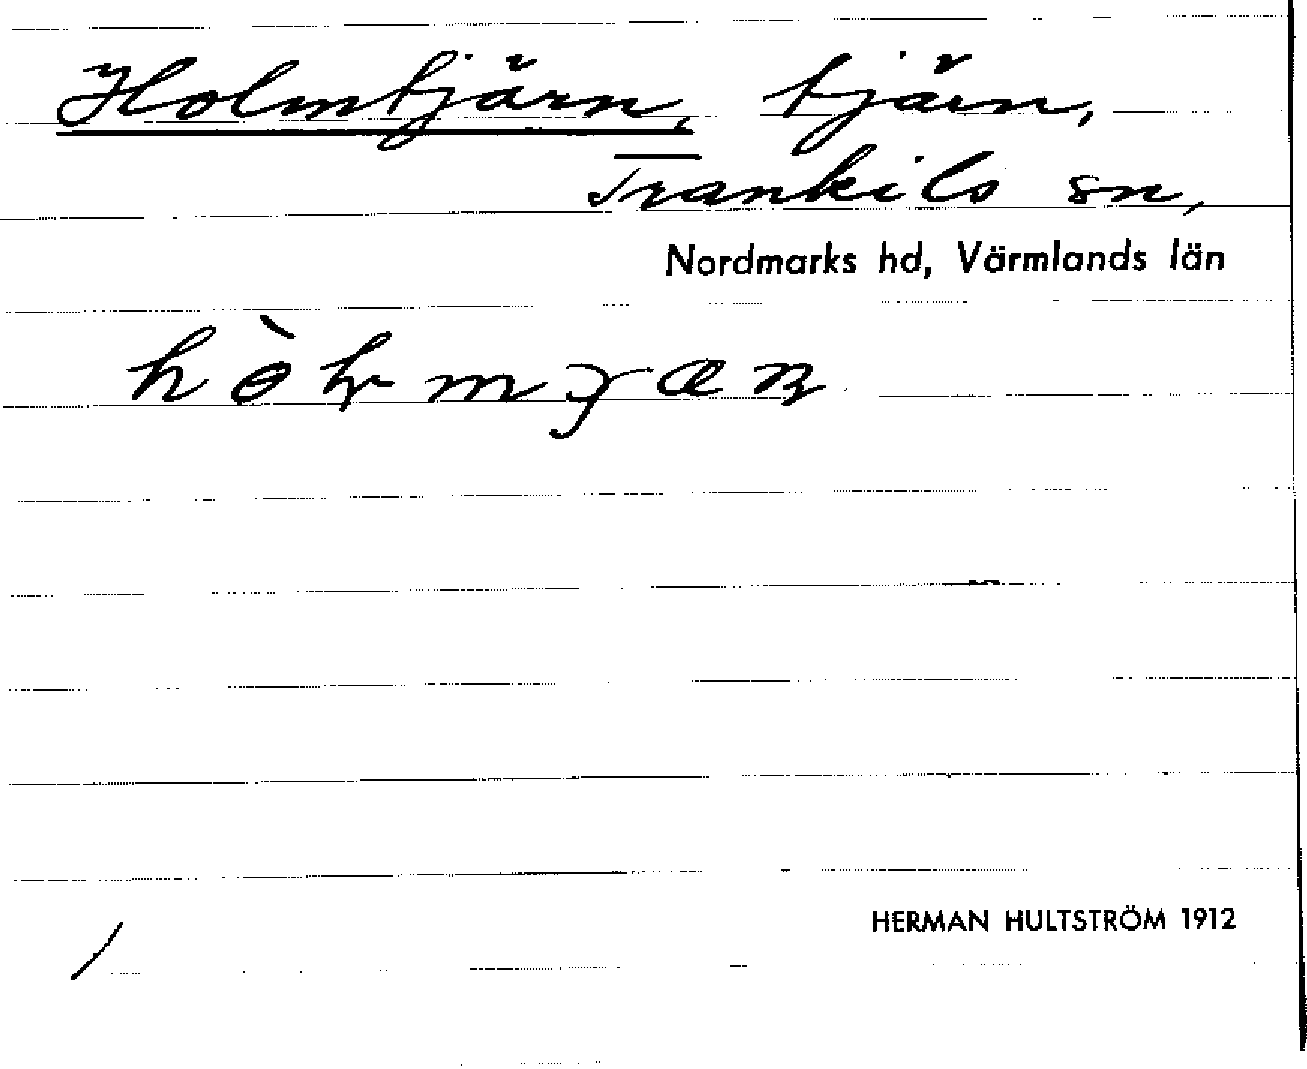 Holmtjärn, tjärn,
Trankils sn,
Nordmarks hd, Värmlands län
HERMAN HULTSTRÖM 1912